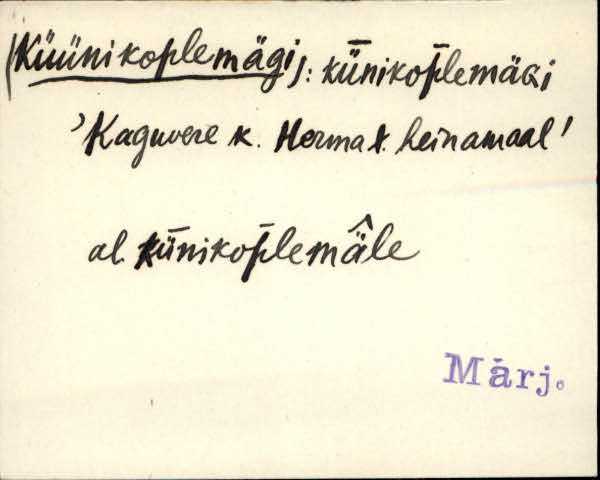 (Küünikoplemägi): kǖnikop̄lemäɢi
'Kaguvere k. Herma t. heinamaal'
al. kǖnikop̄lemä̂le
Märj.